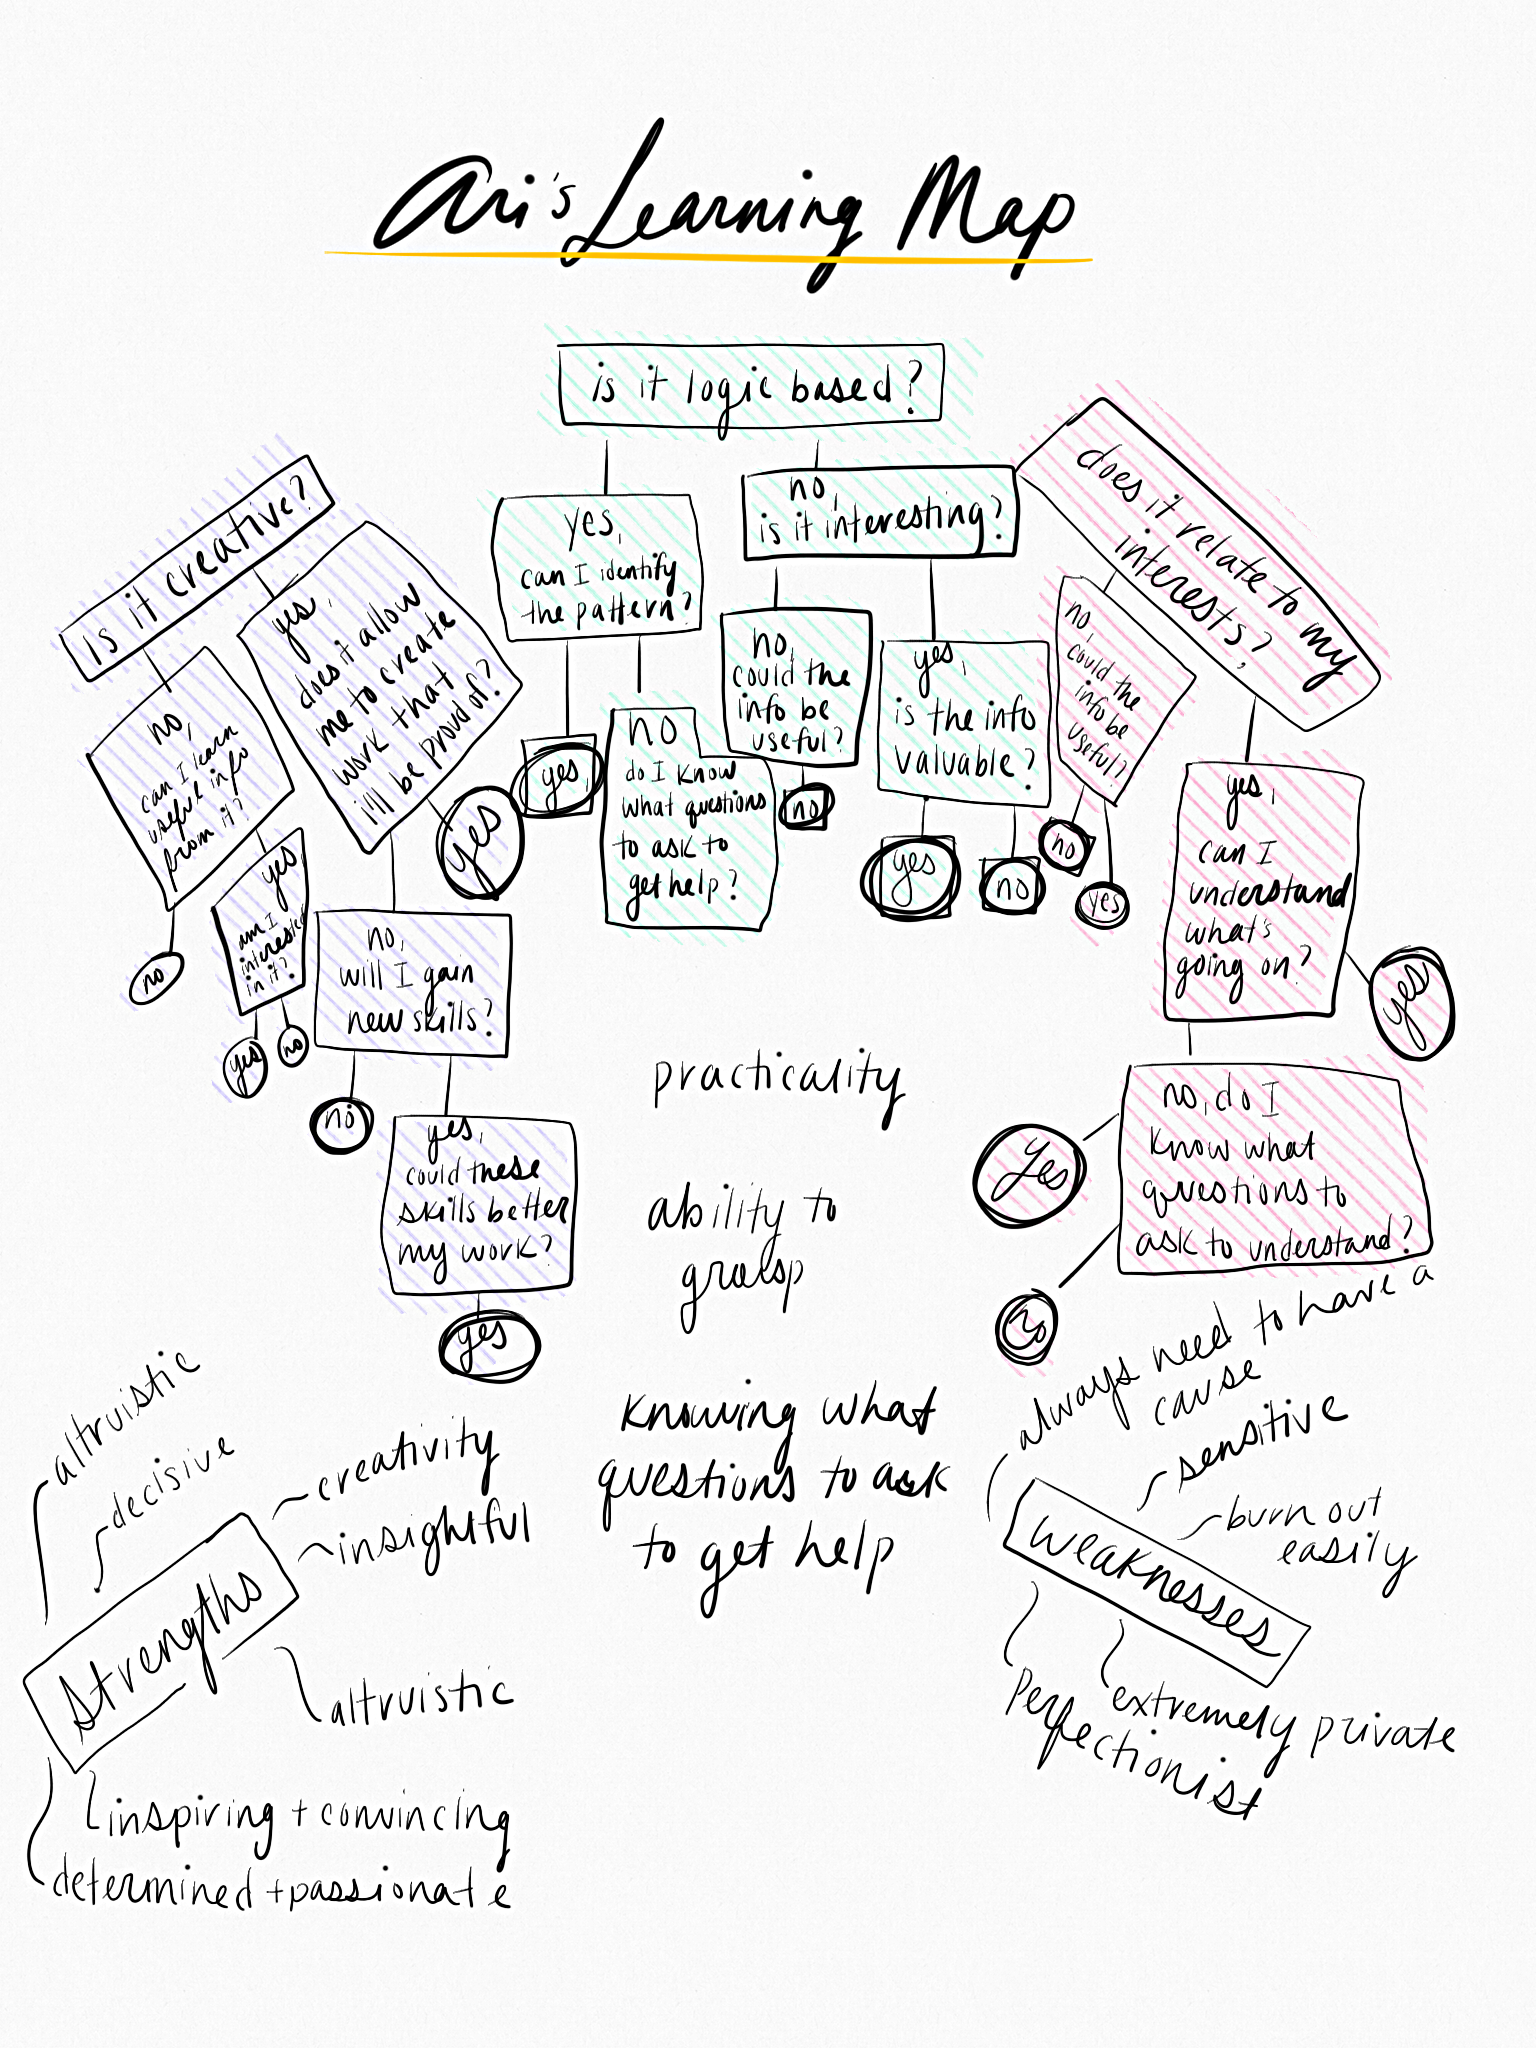 Ari's Learning Map
is it logic based?
yes,
can I identify
the pattern?
yes,
no
do I know
what questions
to ask to
get help?
no,
is it interesting?
no,
could the
info be
useful?
no
yes,
is the info
valuable?
yes
no
is it creative?
no,
can I learn
useful info
from it?
no
yes
am I
interested
in it?
yes
no
yes,
does it allow
me to create
work that
i'll be proud of?
yes
no,
will I gain
new skills?
no
yes,
could these
skills better
my work?
yes
does it relate to my
interests?
no,
could the
info be
useful?
no
yes
yes,
can I
understand
what's
going on?
yes
no, do I
know what
questions to
ask to understand?
yes
no
practicality
ability to
grasp
knowing what
questions to ask
to get help
Strengths
altruistic
decisive
creativity
insightful
altruistic
inspiring + convincing
determined + passionate
weaknesses
always need to have a
cause
sensitive
burn out
easily
extremely private
Perfectionist